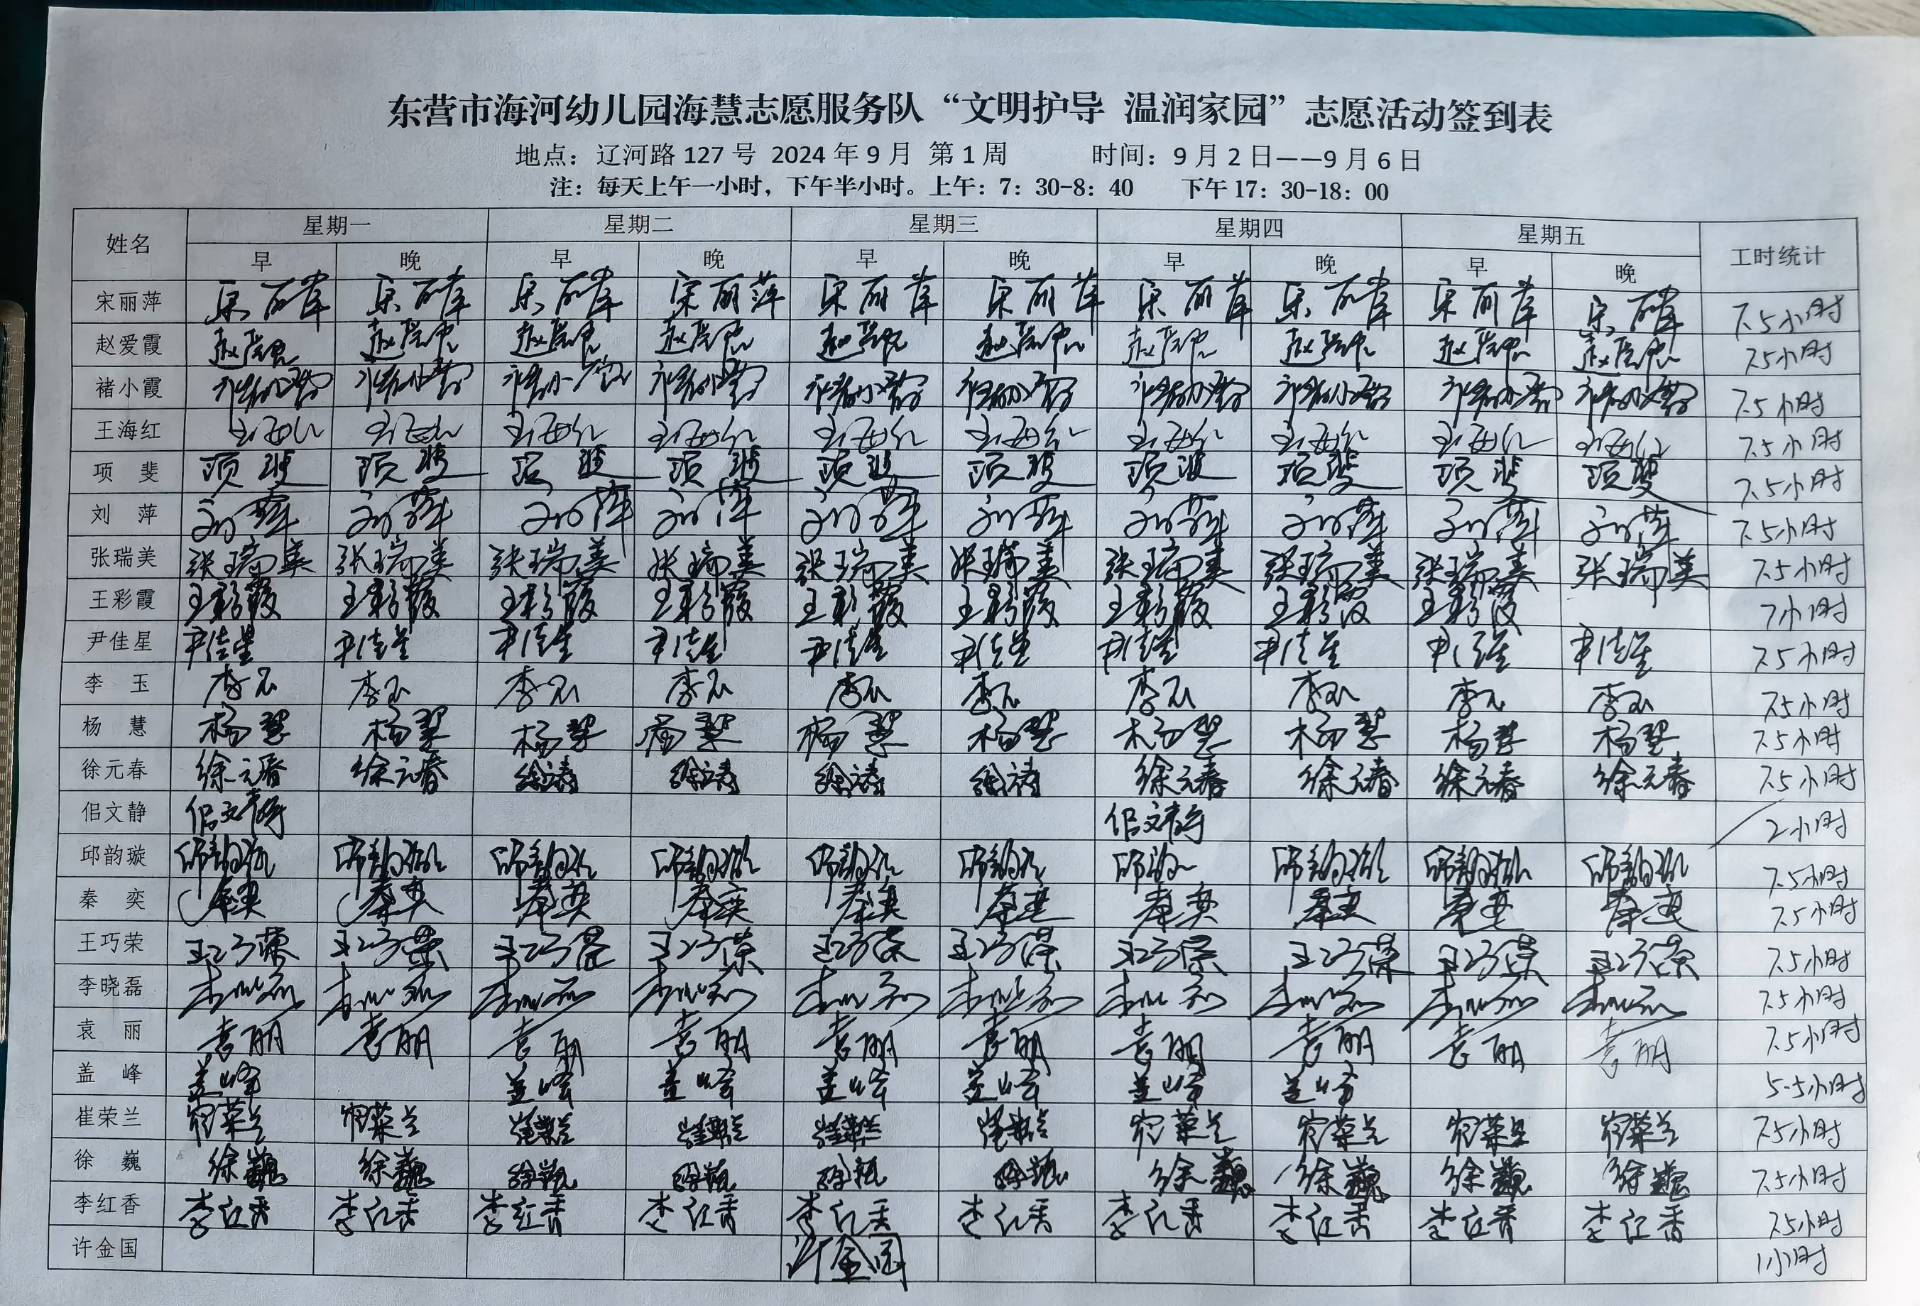 东营市海河幼儿园海慧志愿服务队“文明护导 温润家园”志愿活动签到表
地点：辽河路 127 号 2024 年 9 月 第 1 周 时间：9 月 2 日——9 月 6 日
注：每天上午一小时，下午半小时。上午：7：30-8：40 下午 17：30-18：00
姓名 星期一 星期二 星期三 星期四 星期五 工时统计
早 晚 早 晚 早 晚 早 晚 早 晚
宋丽萍 宋丽萍 宋丽萍 宋丽萍 宋丽萍 宋丽萍 宋丽萍 宋丽萍 宋丽萍 宋丽萍 宋丽萍 7.5小时
赵爱霞 赵爱霞 赵爱霞 赵爱霞 赵爱霞 赵爱霞 赵爱霞 赵爱霞 赵爱霞 赵爱霞 赵爱霞 7.5小时
褚小霞 褚小霞 褚小霞 褚小霞 褚小霞 褚小霞 褚小霞 褚小霞 褚小霞 褚小霞 褚小霞 7.5小时
王海红 王海红 王海红 王海红 王海红 王海红 王海红 王海红 王海红 王海红 王海红 7.5小时
项 斐 项斐 项斐 项斐 项斐 项斐 项斐 项斐 项斐 项斐 项斐 7.5小时
刘 萍 刘萍 刘萍 刘萍 刘萍 刘萍 刘萍 刘萍 刘萍 刘萍 刘萍 7.5小时
张瑞美 张瑞美 张瑞美 张瑞美 张瑞美 张瑞美 张瑞美 张瑞美 张瑞美 张瑞美 张瑞美 7.5小时
王彩霞 王彩霞 王彩霞 王彩霞 王彩霞 王彩霞 王彩霞 王彩霞 王彩霞 王彩霞 7小时
尹佳星 尹佳星 尹佳星 尹佳星 尹佳星 尹佳星 尹佳星 尹佳星 尹佳星 尹佳星 尹佳星 7.5小时
李 玉 李玉 李玉 李玉 李玉 李玉 李玉 李玉 李玉 李玉 李玉 7.5小时
杨 慧 杨慧 杨慧 杨慧 杨慧 杨慧 杨慧 杨慧 杨慧 杨慧 杨慧 7.5小时
徐元春 徐元春 徐元春 徐元春 徐元春 徐元春 徐元春 徐元春 徐元春 徐元春 徐元春 7.5小时
佀文静 佀文静 佀文静 2小时
邱韵璇 邱韵璇 邱韵璇 邱韵璇 邱韵璇 邱韵璇 邱韵璇 邱韵璇 邱韵璇 邱韵璇 邱韵璇 7.5小时
秦 奕 秦奕 秦奕 秦奕 秦奕 秦奕 秦奕 秦奕 秦奕 秦奕 秦奕 7.5小时
王巧荣 王巧荣 王巧荣 王巧荣 王巧荣 王巧荣 王巧荣 王巧荣 王巧荣 王巧荣 王巧荣 7.5小时
李晓磊 李晓磊 李晓磊 李晓磊 李晓磊 李晓磊 李晓磊 李晓磊 李晓磊 李晓磊 李晓磊 7.5小时
袁 丽 袁丽 袁丽 袁丽 袁丽 袁丽 袁丽 袁丽 袁丽 袁丽 袁丽 7.5小时
盖 峰 盖峰 盖峰 盖峰 盖峰 盖峰 盖峰 盖峰 5.5小时
崔荣兰 崔荣兰 崔荣兰 崔荣兰 崔荣兰 崔荣兰 崔荣兰 崔荣兰 崔荣兰 崔荣兰 崔荣兰 7.5小时
徐 巍 徐巍 徐巍 徐巍 徐巍 徐巍 徐巍 徐巍 徐巍 徐巍 徐巍 7.5小时
李红香 李红香 李红香 李红香 李红香 李红香 李红香 李红香 李红香 李红香 李红香 7.5小时
许金国 许金国 1小时